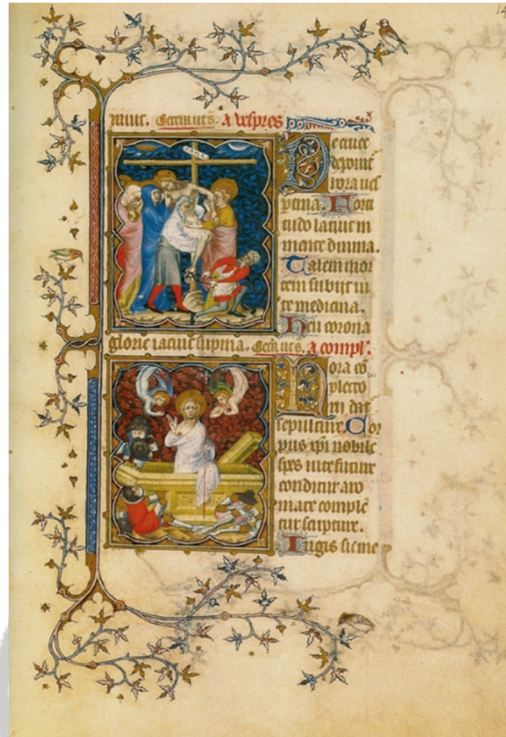 nniit. Gemiits. A vespres
De cruce
deponit
hora ves
pertina. Forti
tudo latuit in
mente divina.
Talem mor
tem subiit vi
te medicina.
Heu corona
glorie iacuit supina. A compl'.
Hora co
pletorii
dat
sepulture. Cor
pus xpi nobile
spes vite future
conditur aro
mate comple
tur scripture.
Iugis sit me